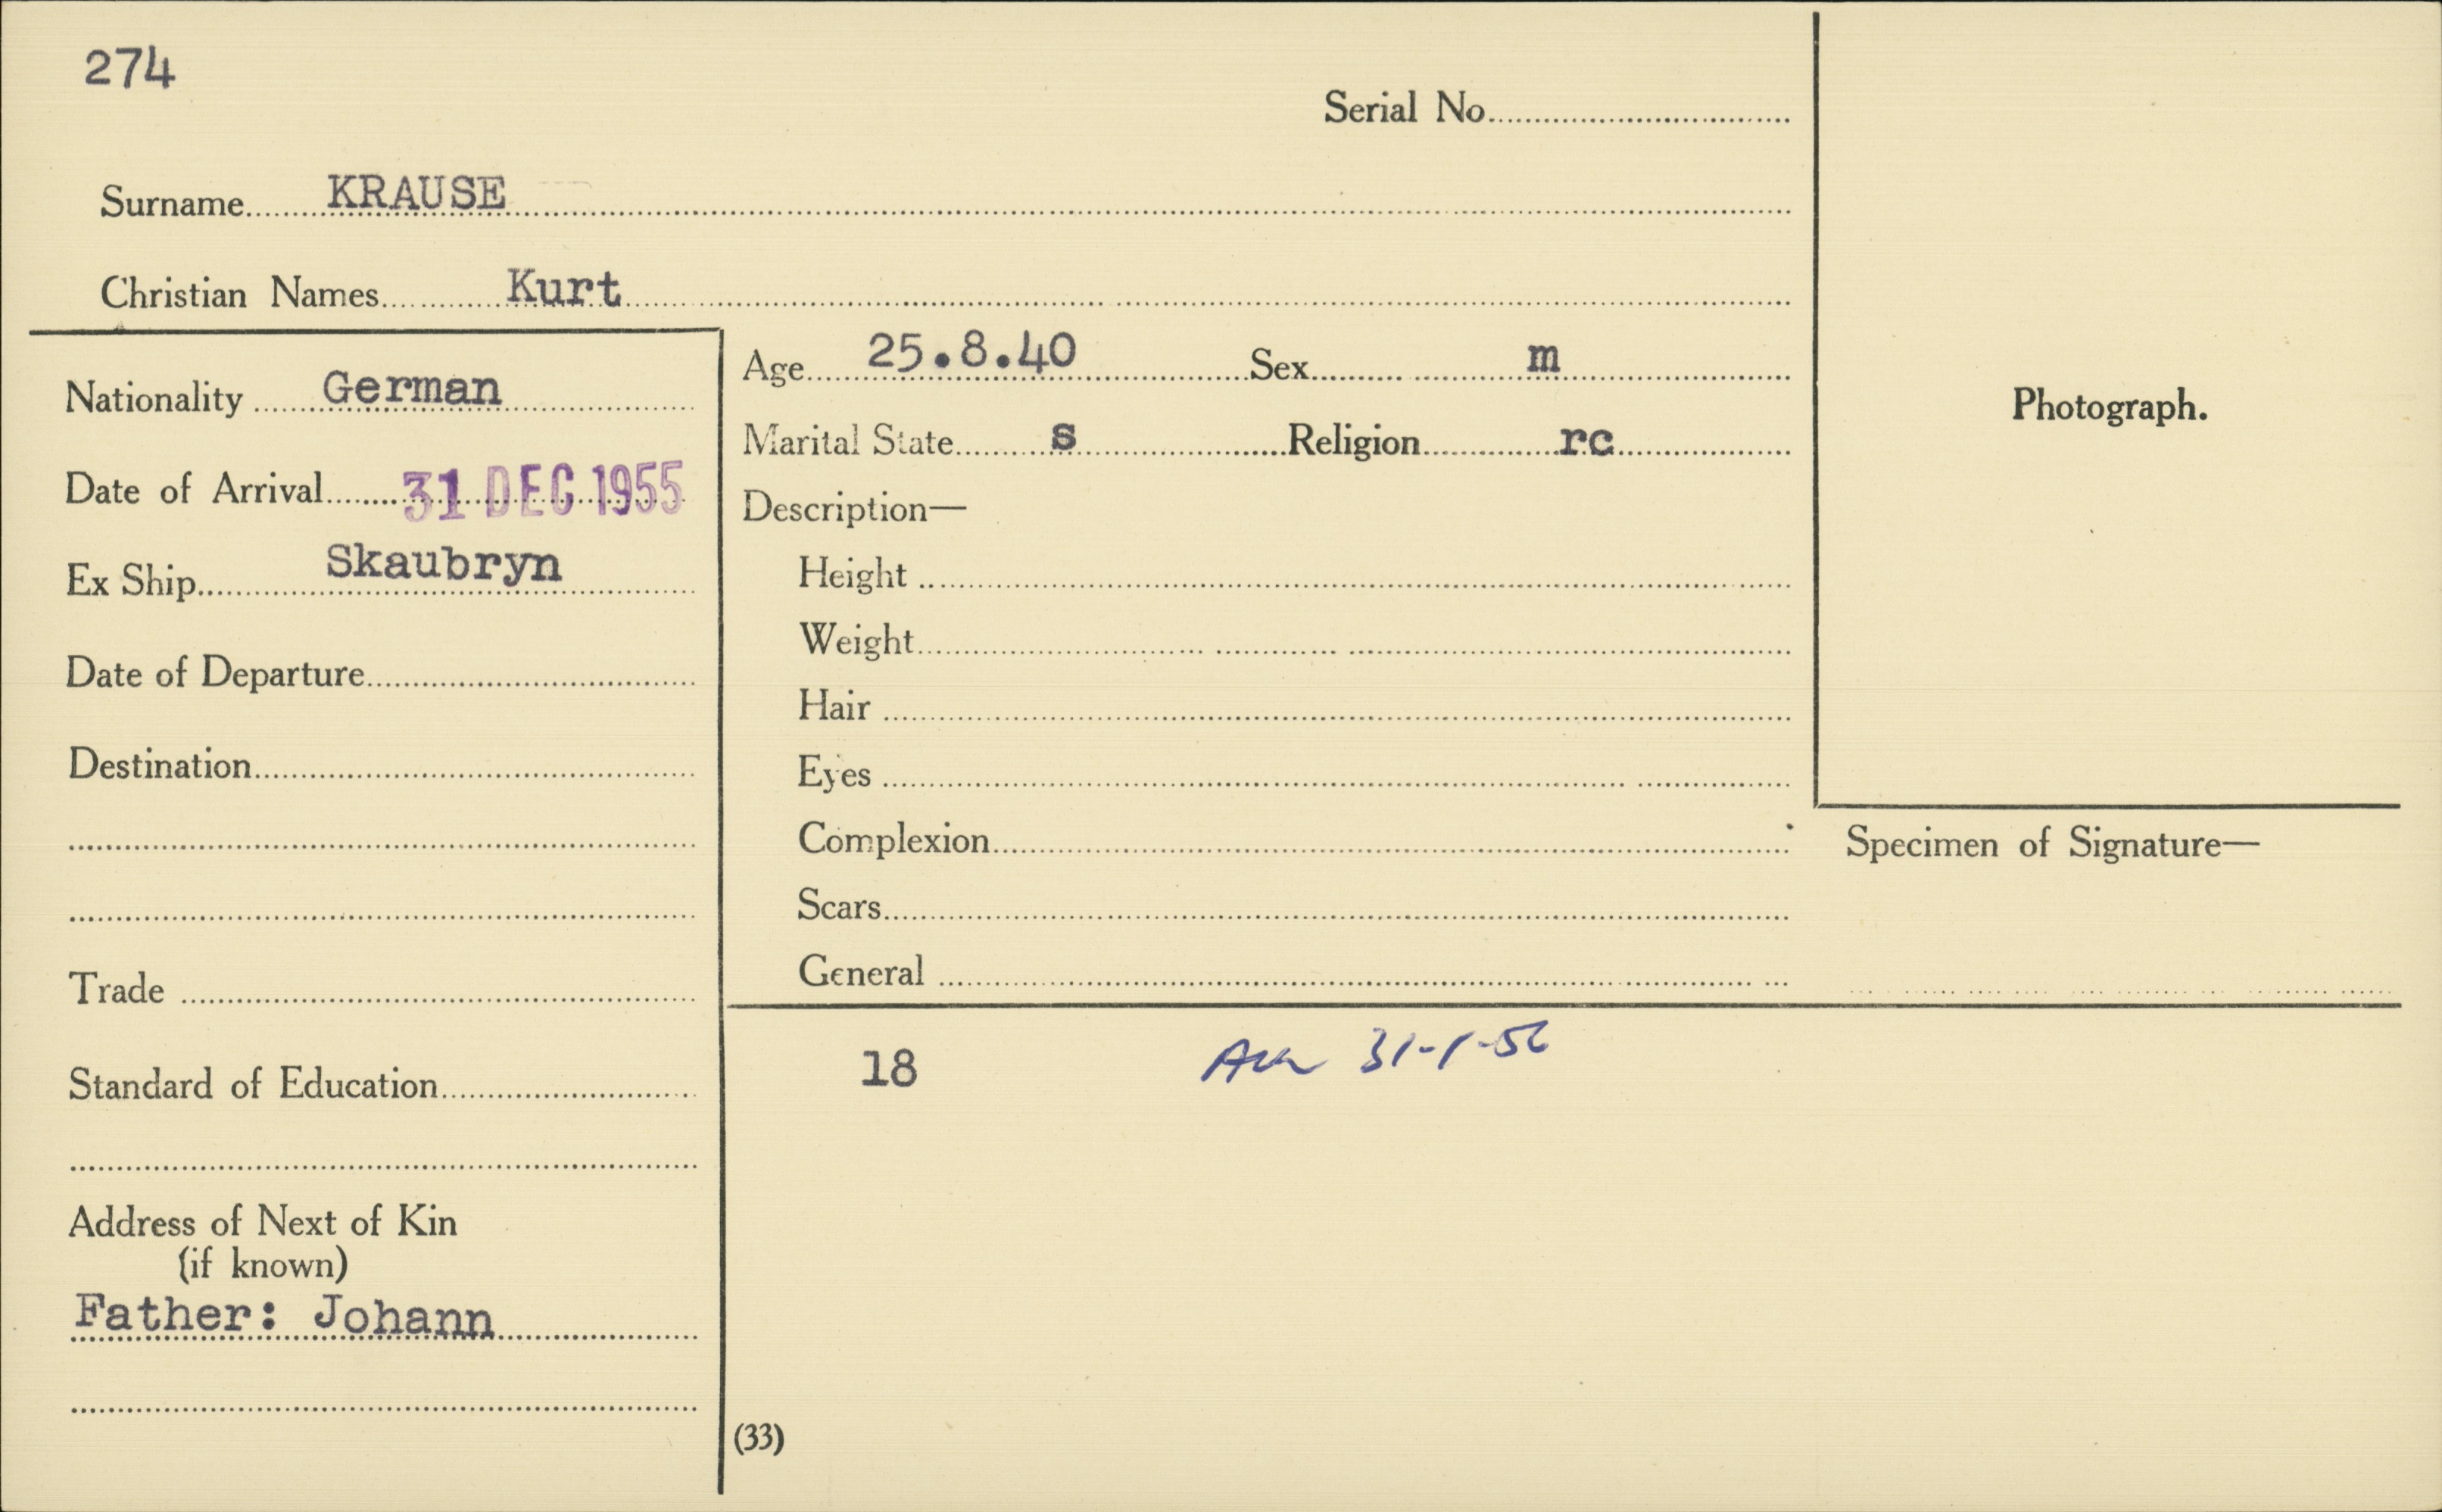 274
Serial No.
Surname KRAUSE
Christian Names Kurt
Nationality German
Date of Arrival 31 DEC 1955
Ex Ship Skaubryn
Date of Departure
Destination
Trade
Standard of Education
Address of Next of Kin
(if known)
Father: Johann
Age 25.8.40 Sex m
Marital State s Religion rc
Description—
Height
Weight
Hair
Eyes
Complexion
Scars
General
Photograph.
Specimen of Signature—
18 31-1-56
(33)